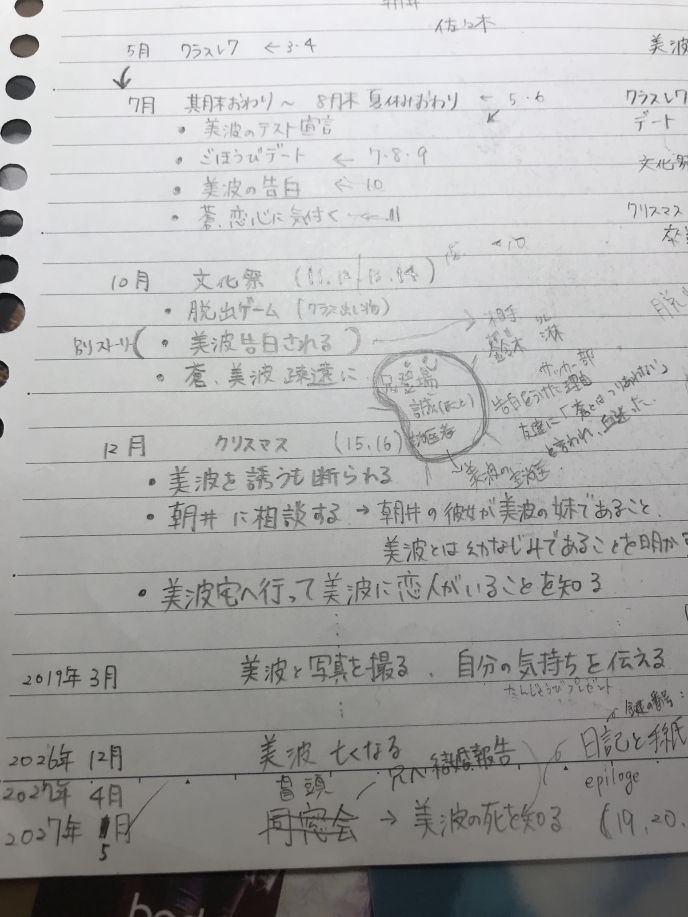 朝井
佐々木
5月 クラスレク ←3・4
美波
7月 期末おわり～ 8月末 夏休みおわり ← 5・6
クラスレク
・美波のテスト宣言
デート
・ごほうびデート ← 7・8・9
文化祭
・美波の告白 ← 10
クリスマス
・蒼、恋心に気付く ← 11
10月 文化祭
・脱出ゲーム (クラス出し物)
別ストーリー( ・美波告白される ) → 相手
・蒼、美波 疎遠に
兄登場
誠(まこと)
サッカー部
告白をうけた理由
友達に「蒼とはつりあわない」
と言われ、血迷った。
12月 クリスマス (15,16)
・美波を誘うも断られる
・朝井に相談する → 朝井の彼女が美波の妹であること、
美波とは幼なじみであることを明か
・美波宅へ行って美波に恋人がいることを知る
2019年3月 美波と写真を撮る、自分の気持ちを伝える
たんじょうびプレゼント
鍵の番号:
2026年 12月 美波 亡くなる
日記と手紙
2027年 4月 冒頭 兄へ結婚報告
epiloge
2027年 5月 同窓会 → 美波の死を知る (19,20.